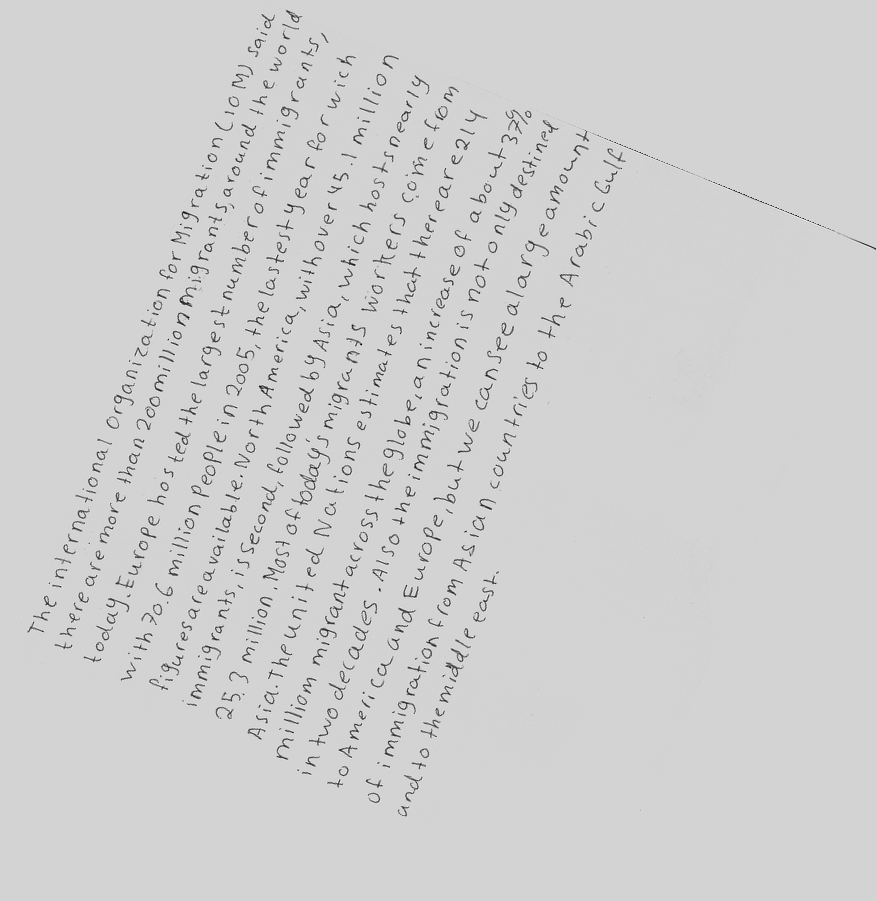 The international Organization for Migration (IOM) said
there are more than 200 million migrants, around the world
today. Europe hosted the largest number of immigrants,
with 70.6 million people in 2005, the lastest year for wich
figures are available. North America, with over 45.1 million
immigrants, is second, followed by Asia, which hosts nearly
25.3 million. Most of today's migrants workers come from
Asia. The united Nations estimates that there are 214
milliom migrant across the globe, an increase of about 37%
in two decades. Also the immigration is not only destined
to America and Europe, but we can see a large amount
of immigration from Asian countries to the Arabic Gulf
and to the middle east.